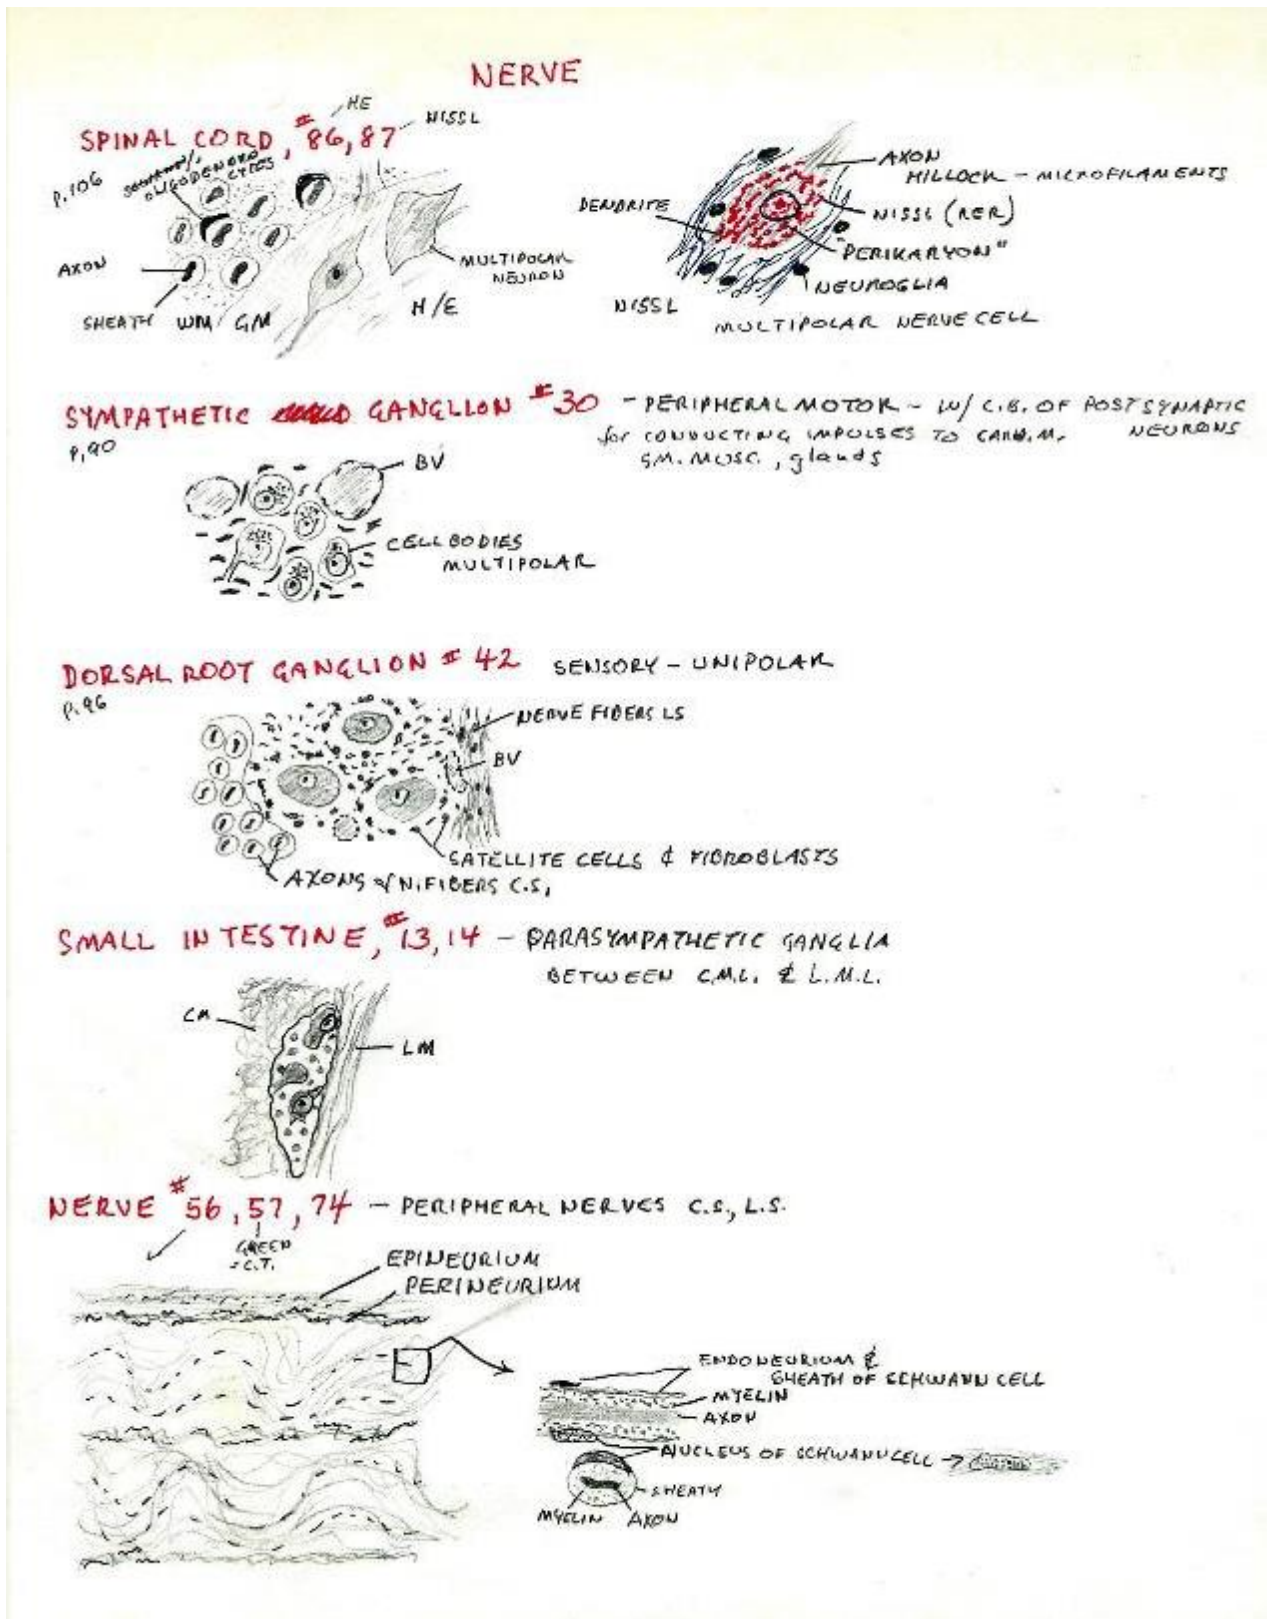 NERVE
SPINAL CORD, #86, 87
HE
NISSL
P.106
OLIGODENDRO
CYTES
AXON
SHEATH WM/GM
H/E
MULTIPOLAR
NEURON
DENDRITE
AXON
HILLOCK - MICROFILAMENTS
NISSL (RER)
"PERIKARYON"
NEUROGLIA
NISSL
MULTIPOLAR NERVE CELL
SYMPATHETIC GANGLION #30 - PERIPHERAL MOTOR - W/ C.B. OF POSTSYNAPTIC
NEURONS
for CONDUCTING IMPULSES TO CARD.M.
SM. MUSC., glands
P.90
BV
CELL BODIES
MULTIPOLAR
DORSAL ROOT GANGLION #42 SENSORY - UNIPOLAR
P.96
NERVE FIBERS LS
BV
SATELLITE CELLS & FIBROBLASTS
AXONS of N. FIBERS C.S.
SMALL INTESTINE, #13, 14 - PARASYMPATHETIC GANGLIA
BETWEEN C.M.L. & L.M.L.
CM
LM
NERVE #56, 57, 74 - PERIPHERAL NERVES C.S., L.S.
GREEN
= C.T.
EPINEURIUM
PERINEURIUM
ENDONEURIUM &
SHEATH OF SCHWANN CELL
MYELIN
AXON
NUCLEUS OF SCHWANN CELL →
SHEATH
MYELIN AXON